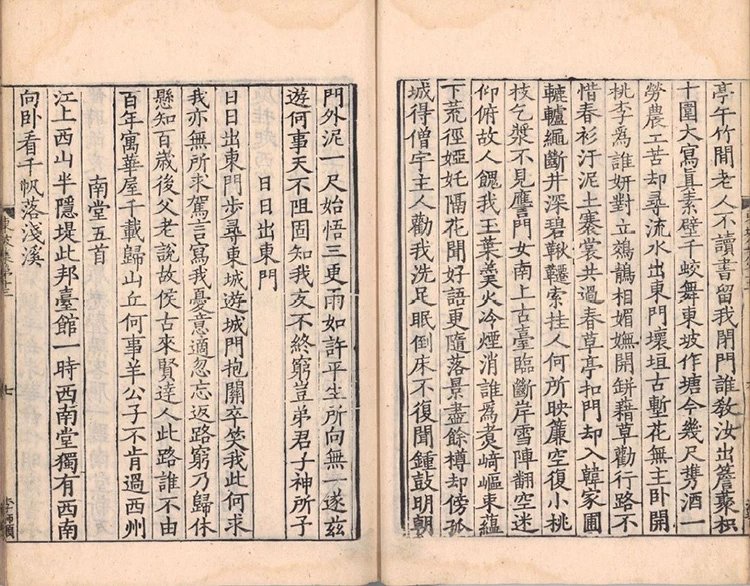 亭午竹間老人不讀書留我閉門誰教汝出簷䕺枳
十圍大寫真素壁千蛟舞東坡作塘今幾尺㩗酒一
勞農工苦却尋流水出東門壞垣古塹花無主卧開
桃李為誰妍對立鵁鶄相媚嫵開缾藉草勸行路不
惜春衫汙泥土褰裳共過春草亭扣門却入韓家圃
轆轤繩斷井深碧鞦韆索挂人何所映簾空復小桃
枝乞漿不見譍門女南上古臺臨斷岸雪陣翻空迷
仰俯故人餽我玉葉羮火冷煙消誰為煑崎嶇束蕴
下荒徑婭姹隔花聞好語更隨落景盡餘樽却傍孤
城得僧宇主人勸我洗足眠倒床不復聞鍾鼓明朝
門外泥一尺始悟三更雨如許平生所向無一遂兹
遊何事天不阻固知我友不終窮豈弟君子神所予
日日出東門
日日出東門步尋東城遊城門抱關卒笑我此何求
我亦無所求駕言寫我憂意適忽忘返路窮乃歸休
懸知百歲後父老說故侯古來賢達人此路誰不由
百年寓華屋千載歸山丘何事羊公子不肯過西州
南堂五首
江上西山半隱堤此邦臺館一時西南堂獨有西南
向卧看千帆落淺溪
七